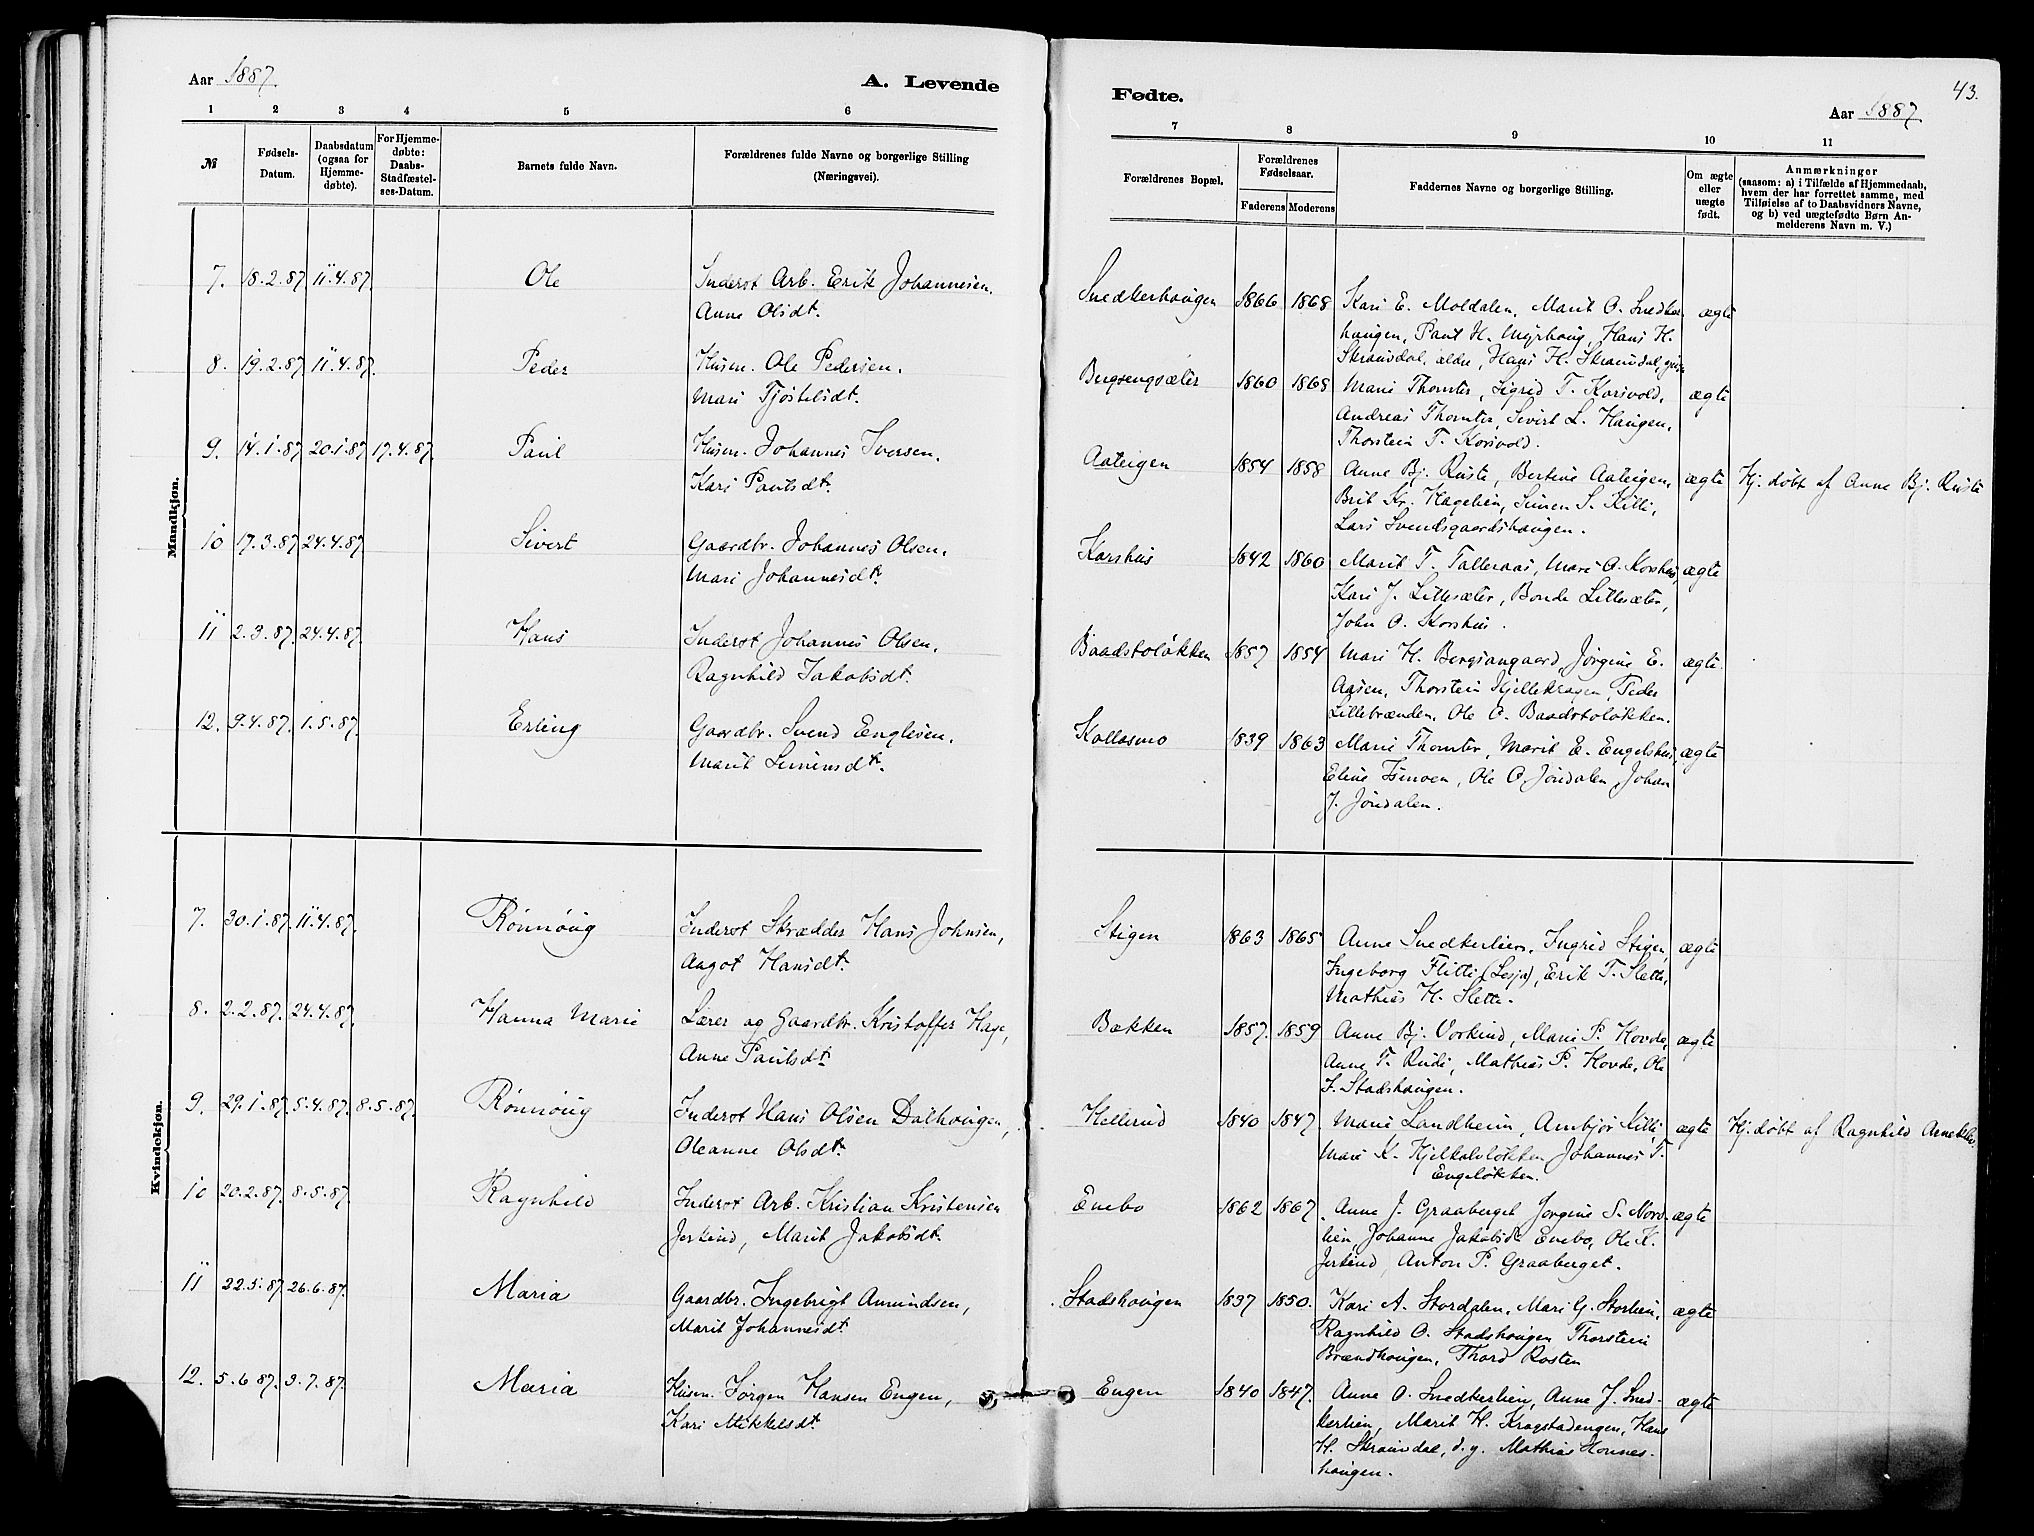 Aar 1887.
A. Levende
1 2 3 4 5 6
№
Fødsels-Datum.
Daabsdatum (ogsaa for Hjemmedøbte).
For Hjemmedøbte: Daabs-Stadfæstelses-Datum.
Barnets fulde Navn.
Forældrenes fulde Navne og borgerlige Stilling (Næringsvei).
Mandkjøn.
7. 18.2.87. 11.4.87. Ole Inderst Arb. Erik Johannesen.
Anne Olsdt.
8. 19.2.87. 11.4.87. Peder Husm. Ole Pedersen.
Mari Tjøstelsdt.
9. 14.1.87. 20.1.87. 17.4.87. Paul Husm. Johannes Iversen.
Kari Paulsdt.
10 17.3.87. 24.4.87. Sivert Gaardbr. Johannes Olsen.
Mari Johannesdt.
11 2.3.87. 24.4.87. Hans Inderst Johannes Olsen.
Ragnhild Jakobsdt.
12. 9.4.87. 1.5.87. Erling Gaardbr. Svend Englesen.
Marit Simensdt.
Kvindekjøn.
7. 30.1.87. 11.4.87. Rønnøug Inderst Skrædder Hans Johnsen,
Aagot Hansdt.
8. 2.2.87. 24.4.87. Hanna Marie Lærer og Gaardbr. Kristoffer Hage,
Anne Paulsdt.
9. 29.1.87. 5.4.87. 8.5.87. Rønnøug Inderst Hans Olsen Dalhougen,
Oleanne Olsdt.
10 20.2.87. 8.5.87. Ragnhild Inderst Arb. Kristian Kristensen
Jerkind, Marit Jakobsdt.
11 22.5.87. 26.6.87. Maria Gaardbr. Ingebrigt Amundsen,
Marit Johannesdt.
12. 5.6.87. 3.7.87. Maria Husm. Jørgen Hansen Engen,
Kari Mikkelsdt.
43.
Fødte.
Aar 1887.
7 8 9 10 11
Forældrenes Bopæl.
Forældrenes Fødselsaar.
Faderens Moderens
Faddernes Navne og borgerlige Stilling.
Om ægte eller uægte født.
Anmærkninger
(saasom: a) i Tilfælde af Hjemmedaab, hvem der har forrettet samme, med Tilføielse af to Daabsvidners Navne, og b) ved uægtefødte Børn Anmelderens Navn m. V.)
Snedkerhaugen 1866 1868 Kari E. Moldalen, Marit O. Snedker
haugen, Paul H. Myrhaug, Hans H. ægte
Skramsdal, ældre, Hans H. Skramsdal,
Bergsengsæter 1860 1868 Mari Thomter, Sigrid T. Korsvold, ægte
Andreas Thomter, Sivert L. Haugen,
Thorstein T. Korsvold.
Aateigen 1854 1858 Anne Bj. Ruste, Bertine Aateigen, ægte Hj. døbt af Anne Bj. Ruste
Brit Kr. Hagelien, Simen S. Killi,
Lars Svendsgaardshaugen.
Korshus 1842 1860 Marit T. Talleraas, Mari O. Korshus, ægte
Kari J. Lillesæter, Bonde Lillesæter,
John O. Korshus.
Baadstoløkken 1857 1854 Mari H. Bergsangaard, Jørgine E. ægte.
Aasen, Thorstein Kjellekragen, Peder
Lillebrænden, Ole O. Baadstoløkken.
Kollasmo 1839 1863 Mari Thomter, Marit E. Engelshus, ægte
Eline Ismoen, Ole O. Jøndalen, Johan
J. Jøndalen.
Stigen 1863 1865 Anne Snedkerlien, Ingrid Stigen, ægte
Ingeborg Flitti (Lesja), Erik T. Slette,
Mathias H. Slette.
Bækken 1857. 1859 Anne Bj. Vorkind, Mari P. Hovde, ægte
Anne T. Rudi, Mathias P. Hovde, Ole
I. Stadshaugen.
Hellerud 1840 1847. Mari Landheim, Ambjør Killi ægte Hj. døbt af Ragnhild
Mari K. Kjelkaleløkken, Johannes T.
Engeløkken.
Enebo 1862 1867. Anne J. Graaberget, Jørgine S. Nord- ægte
lien, Johanne Jakobsdt. Enebo, Ole K.
Jerkind, Anton P. Graaberget.
Stadshougen 1837 1850. Kari A. Stordalen, Mari G. Storlien, ægte
Ragnhild O. Stadshougen, Thorstein
Brændhougen, Thord Rosten
Engen 1840 1847. Anne O. Snedkerlien, Anne J. Sned- ægte
kerlien, Marit H. Kragstadengen, Hans
H. Skramsdal, d.y. Mathias Honnes-
haugen.